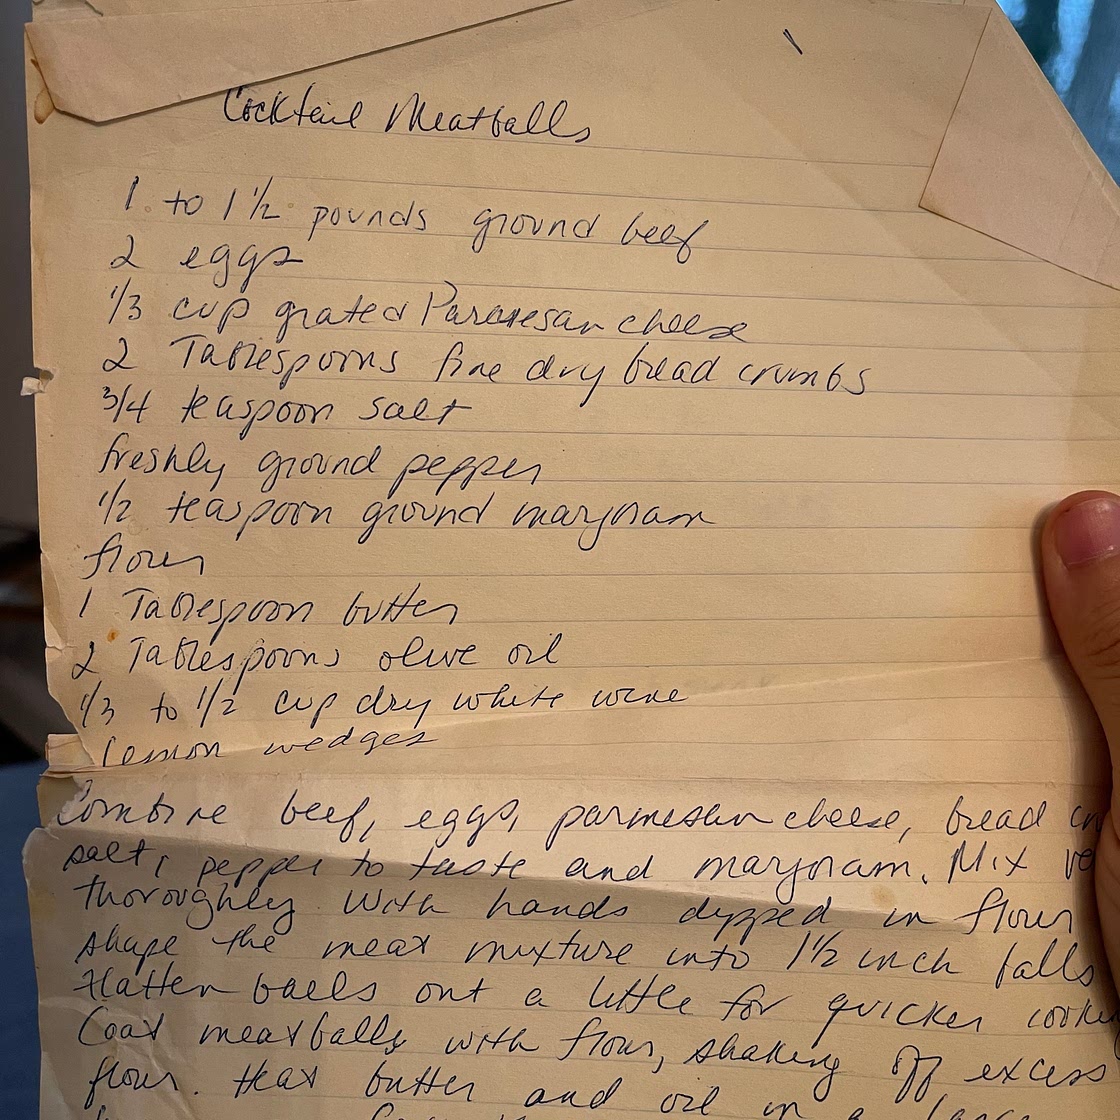 Cocktail Meatballs
1 to 1 1/2 pounds ground beef
2 eggs
1/3 cup grated Parmesan cheese
2 Tablespoons fine dry bread crumbs
3/4 teaspoon salt
freshly ground pepper
1/2 teaspoon ground marjoram
flour
1 Tablespoon butter
2 Tablespoons olive oil
1/3 to 1/2 cup dry white wine
lemon wedges
Combine beef, eggs, parmesan cheese, bread
salt, pepper to taste and marjoram. Mix
thoroughly. With hands dipped in flour
shape the meat mixture into 1 1/2 inch balls
Flatten balls out a little for quicker
Coat meatballs with flour, shaking off excess
flour. Heat butter and oil in a